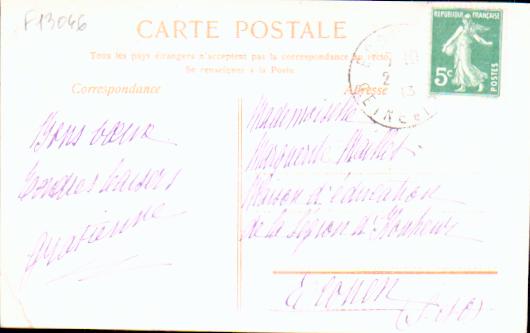 F13046
CARTE POSTALE
Tous les pays étrangers n'acceptent pas la correspondance au recto
Se renseigner à la Poste
Correspondance
Adresse
RÉPUBLIQUE FRANÇAISE
5c
POSTES
Bons vœux
Tendres baisers
Mademoiselle
Marguerite
Maison d'éducation
de la Légion d'Honneur
Ecouen
(S et O)